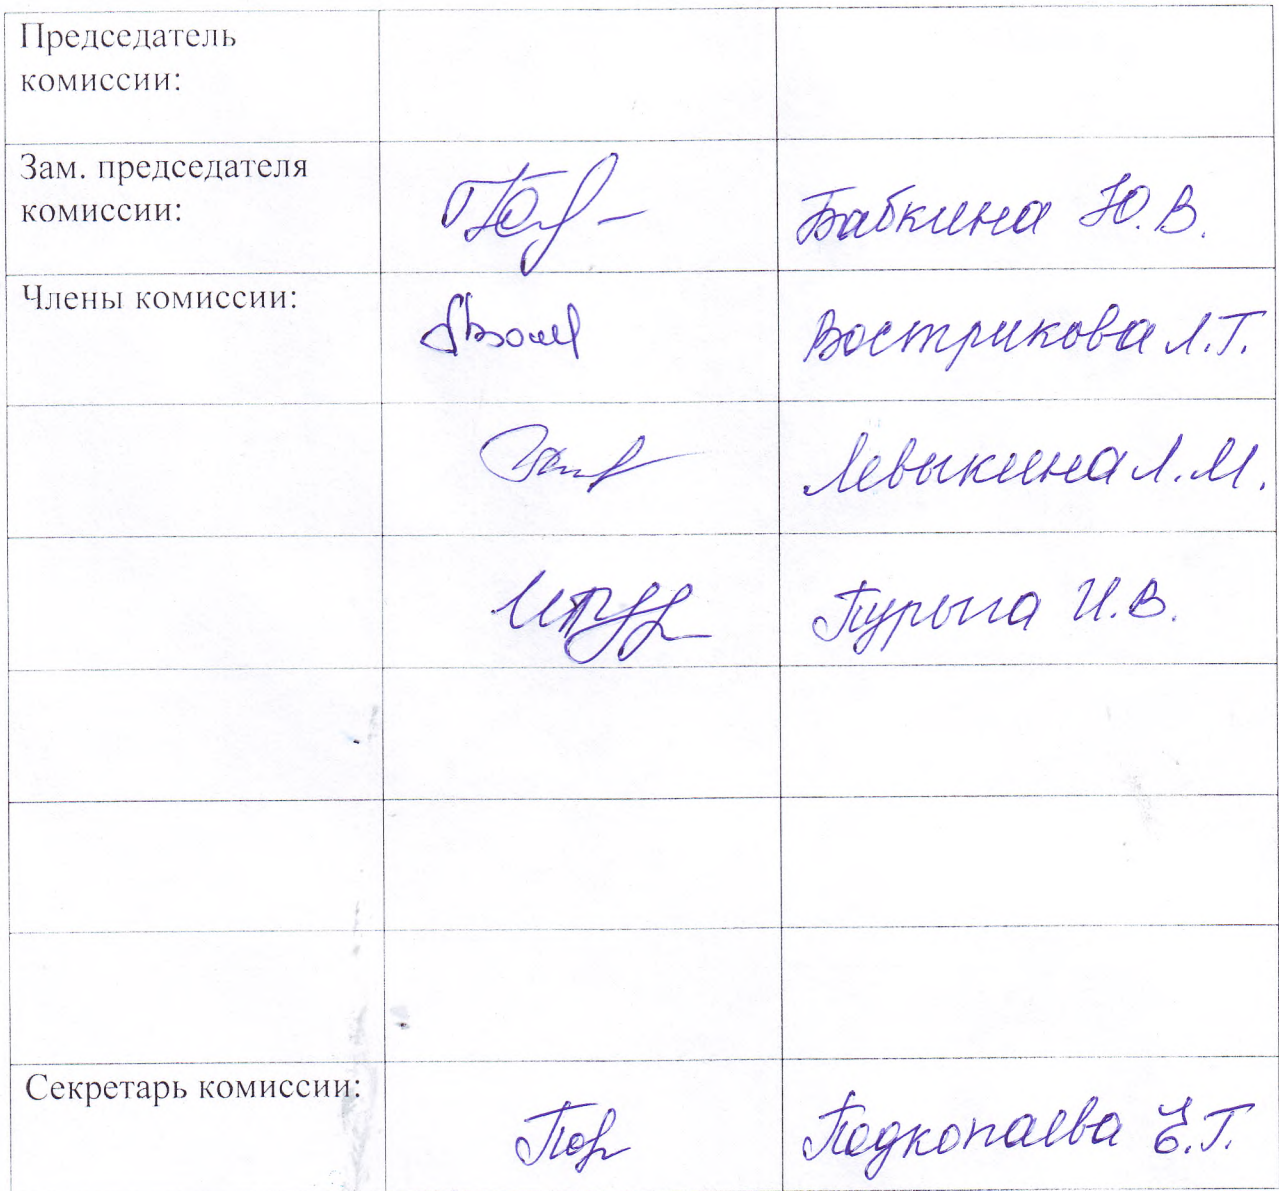 Председатель
комиссии:
Зам. председателя
комиссии:
Бабкина Ю.В.
Члены комиссии:
Вострикова Л.Т.
Левыкина Л.М.
Пурыга И.В.
Секретарь комиссии:
Подкопаева Е.Г.